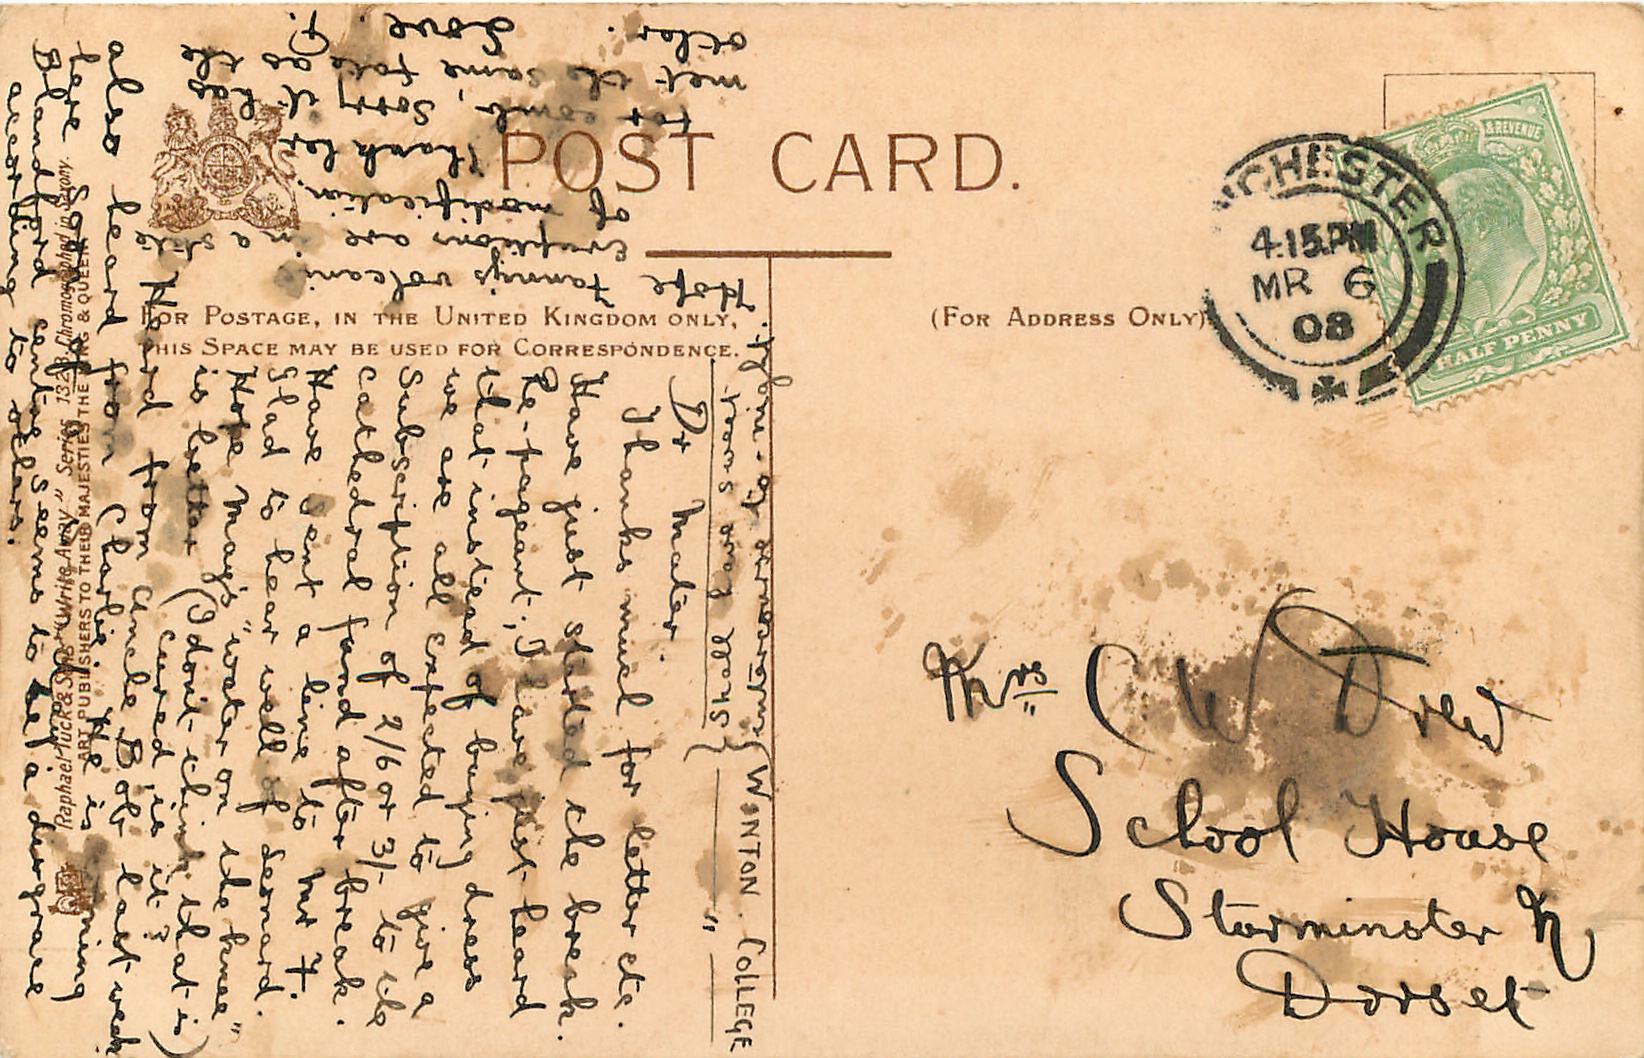 POST CARD.
FOR POSTAGE, IN THE UNITED KINGDOM ONLY,
THIS SPACE MAY BE USED FOR CORRESPONDENCE.
(FOR ADDRESS ONLY)
& REVENUE
HALF PENNY
CHESTER
4.15 PM
MR 6
08
Mrs C W Drew
School House
Sturminster N
Dorset
WINTON COLLEGE
Dr Mater.
Thanks much for letter etc.
Have just started the break.
Re-pageant, I have just heard
that instead of buying dress
we are all expected to give a
Subscription of 2/6 or 3/- to the
Cathedral fund after break.
Have sent a line to Mr F.
Glad to hear well of Bernard.
Hope May's "water on the knee"
is better (I don't think that is)
cured, is it?
Heard from Uncle Bob last week
also heard from Charlie. He is
Blandford centre seems to be a disgrace
according to others.
Hope Fanny's volcanic
eruptions are in a state
of modification.
Thank her
for comb, Sorry it has
met the same fate as the
other.
Love
Raphael Tuck & Sons "Write Away" Series 1328 Chromographed in Saxony.
ART PUBLISHERS TO THEIR MAJESTIES THE KING & QUEEN